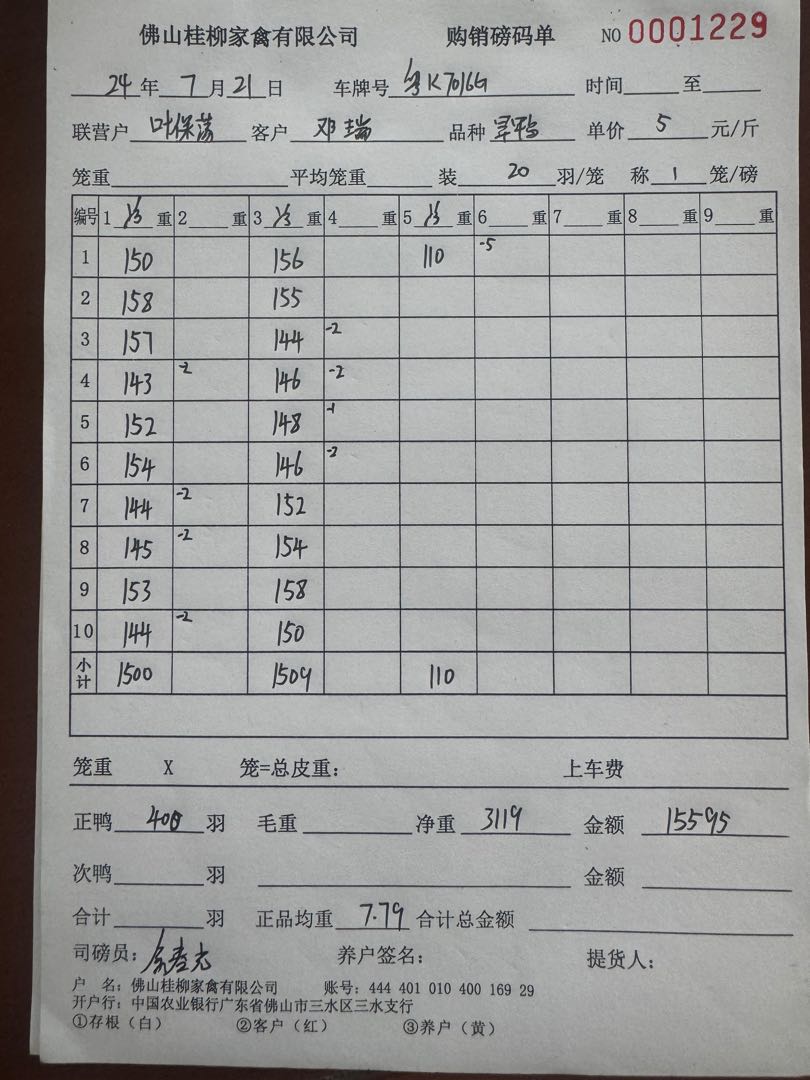 佛山桂柳家禽有限公司 购销磅码单 NO 0001229
24年 7月 21日 车牌号 粤K7016G 时间 至
联营户 叶保荡 客户 邓瑞 品种 旱鸭 单价 5 元/斤
笼重 平均笼重 装 20 羽/笼 称 1 笼/磅
编号 1 重 2 重 3 重 4 重 5 重 6 重 7 重 8 重 9 重
1 150 156 110 -5
2 158 155
3 157 144 -2
4 143 -2 146 -2
5 152 148 -1
6 154 146 -2
7 144 -2 152
8 145 -2 154
9 153 158
10 144 -2 150
小计 1500 1509 110
笼重 X 笼=总皮重: 上车费
正鸭 400 羽 毛重 净重 3119 金额 15595
次鸭 羽 金额
合计 羽 正品均重 7.79 合计总金额
司磅员: 养户签名: 提货人:
户 名: 佛山桂柳家禽有限公司 账号: 444 401 010 400 169 29
开户行: 中国农业银行广东省佛山市三水区三水支行
①存根(白) ②客户(红) ③养户(黄)